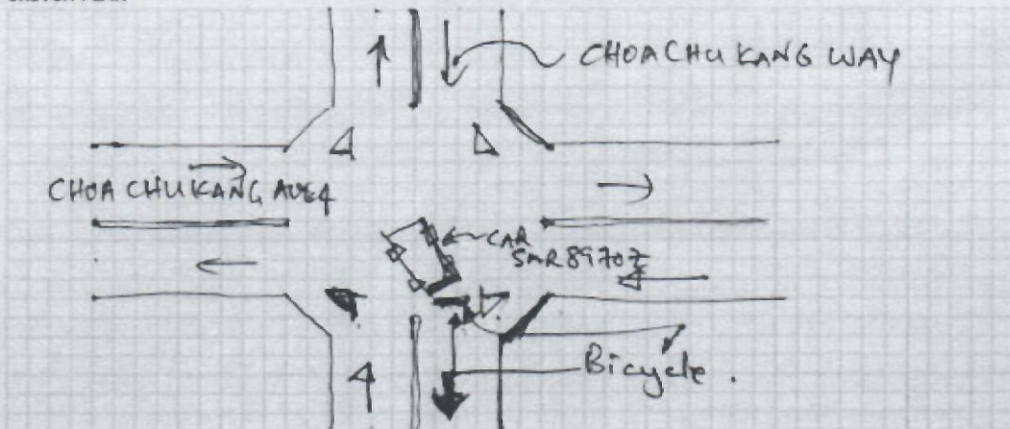 CHOA CHU KANG WAY
CHOA CHU KANG AVE 4
CAR
SMR8970Z
Bicycle.